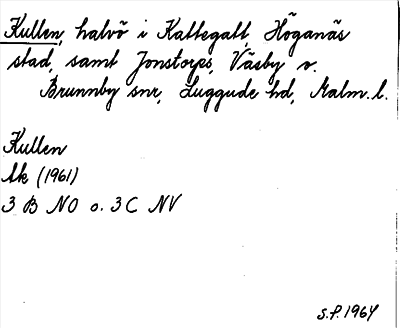 Kullen, halvö i Kattegatt, Höganäs
stad, samt Jonstorps, Väsby o.
Brunnby snr, Luggude hd, Malm. l.
Kullen
Ak (1961)
3 B NO o. 3 C NV
S.P. 1964